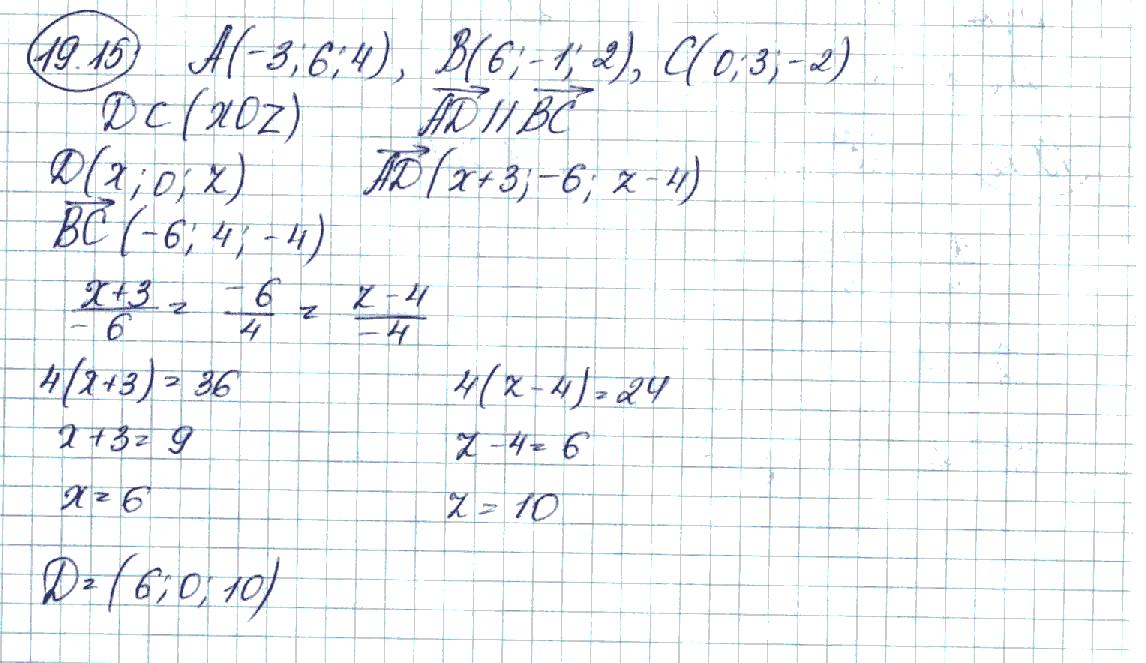 19.15 A(-3; 6; 4), B(6; -1; 2), C(0; 3; -2)
D ⊂ (XOZ) \overrightarrow{AD} || \overrightarrow{BC}
D(x; 0; z) \overrightarrow{AD}(x+3; -6; z-4)
\overrightarrow{BC}(-6; 4; -4)
\frac{x+3}{-6} = \frac{-6}{4} = \frac{z-4}{-4}
4(x+3) = 36 4(z-4) = 24
x+3 = 9 z-4 = 6
x = 6 z = 10
D = (6; 0; 10)